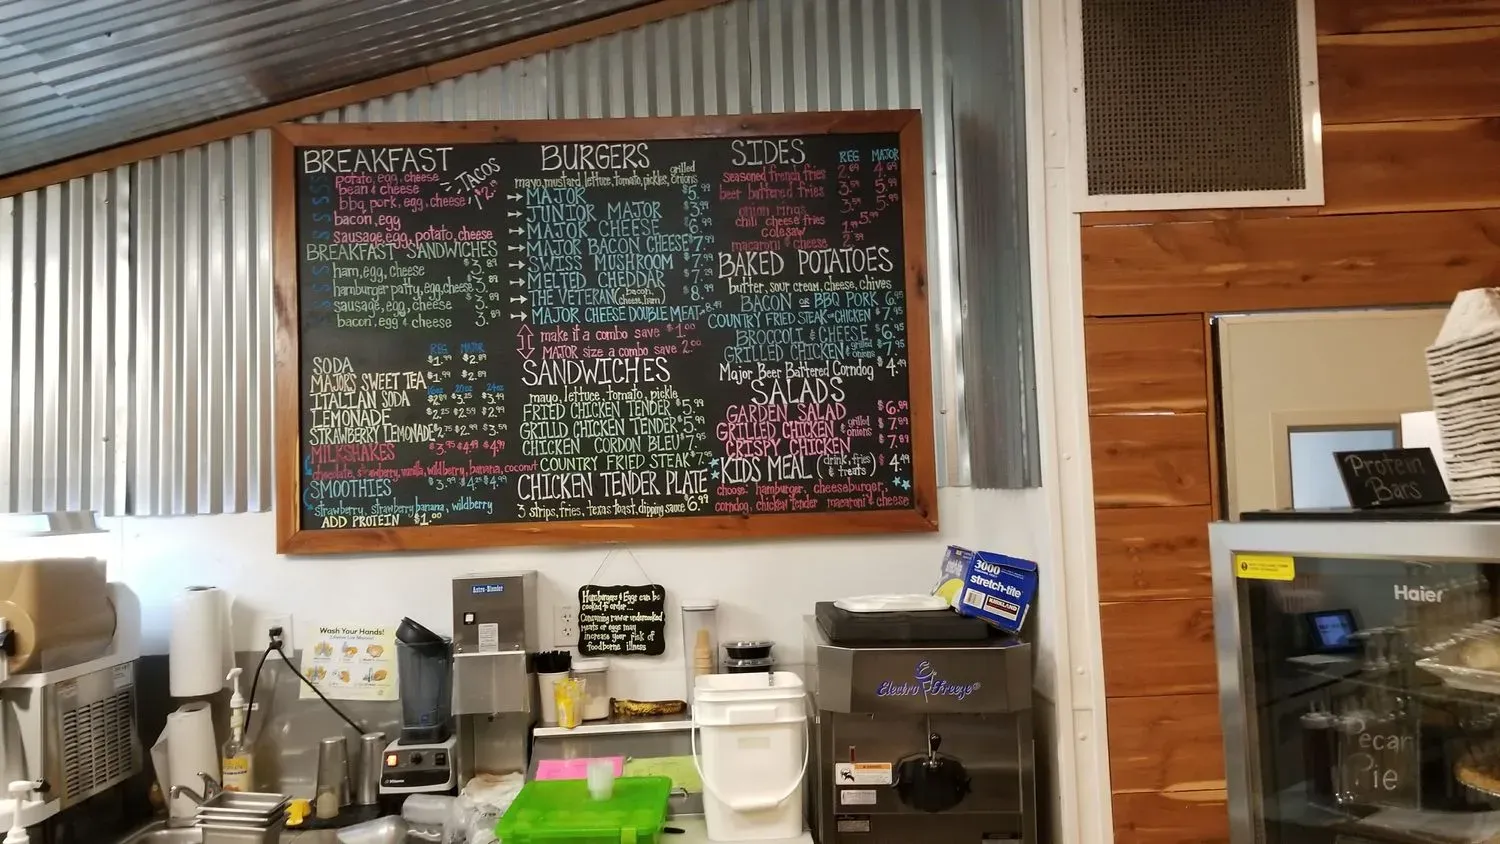 BREAKFAST
TACOS
potato, egg, cheese
bean & cheese
bbq pork, egg, cheese
bacon, egg
sausage, egg, potato, cheese
BREAKFAST SANDWICHES
ham, egg, cheese $3.89
hamburger patty, egg, cheese $3.89
sausage, egg, cheese 3.89
bacon, egg & cheese 3.89
REG MAJOR
SODA $1.99 $2.89
MAJORS SWEET TEA $1.99 $2.89
16oz 20oz 24oz
ITALIAN SODA $3.25 $3.49
LEMONADE $2.25 $2.59 $2.99
STRAWBERRY LEMONADE $2.75 $2.99 $3.59
MILKSHAKES $3.95 $4.49 $4.99
chocolate, strawberry, vanilla, wildberry, banana, coconut
SMOOTHIES $3.99
strawberry, strawberry banana, wildberry
ADD PROTEIN $1.00
BURGERS
mayo, mustard, lettuce, tomato, pickles, grilled onions
MAJOR $5.99
JUNIOR MAJOR $3.99
MAJOR CHEESE $6.99
MAJOR BACON CHEESE $7.99
SWISS MUSHROOM $7.99
MELTED CHEDDAR $7.29
THE VETERAN (bacon, cheese, ham) $8.99
MAJOR CHEESE DOUBLE MEAT 8.49
make it a combo save $1.00
MAJOR size a combo save 2.00
SANDWICHES
mayo, lettuce, tomato, pickle
FRIED CHICKEN TENDER $5.99
GRILLD CHICKEN TENDER $5.99
CHICKEN CORDON BLEU $7.95
COUNTRY FRIED STEAK $7.95
CHICKEN TENDER PLATE
3 strips, fries, texas toast, dipping sauce $6.99
SIDES REG MAJOR
seasoned french fries 2.69 4.69
beer battered fries 3.59 5.99
onion rings 3.59 5.99
chili cheese fries 5.99
coleslaw 1.99
macaroni & cheese 2.39
BAKED POTATOES
butter, sour cream, cheese, chives
BACON OR BBQ PORK 6.95
COUNTRY FRIED STEAK OR CHICKEN $7.95
BROCCOLI & CHEESE $6.95
GRILLED CHICKEN & grilled onions $7.95
Major Beer Battered Corndog $4.49
SALADS
GARDEN SALAD $6.89
GRILLED CHICKEN & grilled onions $7.89
CRISPY CHICKEN $7.89
KIDS MEAL (drink, fries & treats) $4.49
choose: hamburger, cheeseburger,
corndog, chicken tender macaroni & cheese
Protein
Bars
Haier
Pecan
Pie
3000
stretch-tite
KIRKLAND
Astro-Blender
Wash Your Hands!
Hamburgers & Eggs can be
cooked to order...
Consuming raw or undercooked
meats or eggs may
increase your risk of
foodborne illness
Electro Freeze